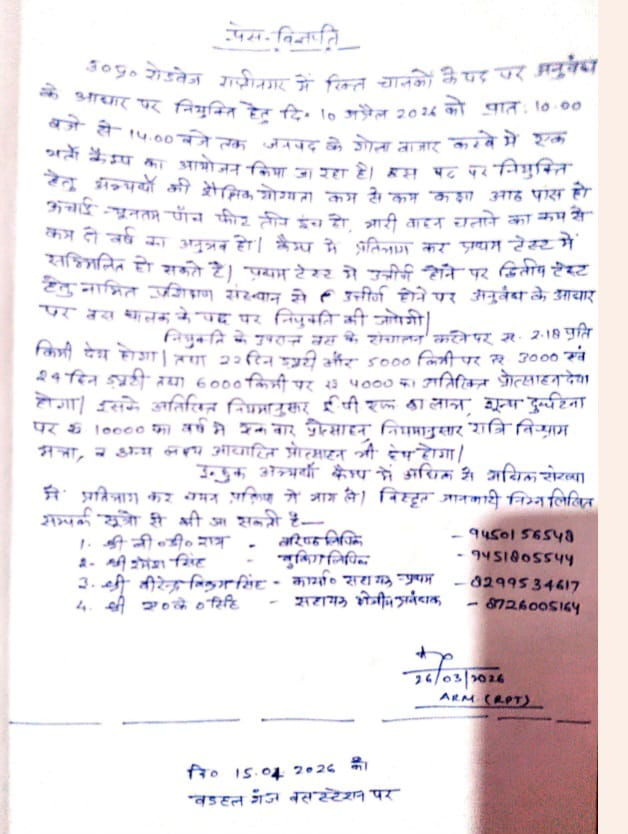 प्रेस-विज्ञप्ति
उ०प्र० रोडवेज राप्तीनगर में रिक्त चालकों के पद पर अनुबंध
के आधार पर नियुक्ति हेतु दि० 10 अप्रैल 2026 को प्रात: 10.00
बजे से 14.00 बजे तक जनपद के गोला बाजार कस्बे में एक
भर्ती कैम्प का आयोजन किया जा रहा है। इस पद पर नियुक्ति
हेतु अभ्यर्थी की शैक्षिक योग्यता कम से कम कक्षा आठ पास हो
ऊंचाई - न्यूनतम पाँच फीट तीन इंच हो, भारी वाहन चलाने का कम से
कम दो वर्ष का अनुभव हो। कैम्प में प्रतिभाग कर प्रथम टेस्ट में
सम्मिलित हो सकते है। प्रथम टेस्ट में उत्तीर्ण होने पर द्वितीय टेस्ट
हेतु नामित प्रशिक्षण संस्थान से उत्तीर्ण होने पर अनुबंध के आधार
पर बस चालक के पद पर नियुक्ति की जायेगी।
नियुक्ति के उपरान्त बस के संचालन करने पर रू. 2.18 प्रति
किमी देय होगा। तथा 22 दिन ड्यूटी और 5000 किमी पर रू 3000 एवं
24 दिन ड्यूटी तथा 6000 किमी पर रू 4000 का अतिरिक्त प्रोत्साहन देय
होगा। इसके अतिरिक्त नियमानुसार ई पी एफ का लाभ, शून्य दुर्घटना
पर रू 10000 का वर्ष में एक बार प्रोत्साहन, नियमानुसार रात्रि विश्राम
भत्ता, व अन्य लक्ष्य आधारित प्रोत्साहन भी देय होगा।
इच्छुक अभ्यर्थी कैम्प में अधिक से अधिक संख्या
में प्रतिभाग कर चयन प्रक्रिया में भाग ले। विस्तृत जानकारी निम्न लिखित
सम्पर्क सूत्रो से की जा सकती है—
1. श्री बी०डी० राय - वरिष्ठ लिपिक - 9450156548
2. श्री रमेश सिंह - बुकिंग लिपिक - 9451805544
3. श्री वीरेन्द्र विक्रम सिंह - कार्या० सहायक-प्रथम - 8299534617
4. श्री ए०के० सिंह - सहायक क्षेत्रीय प्रबंधक - 8726005164
26/03/2026
ARM. (RPT)
दि० 15.04 2026 को
बड़हल गंज बस स्टेशन पर